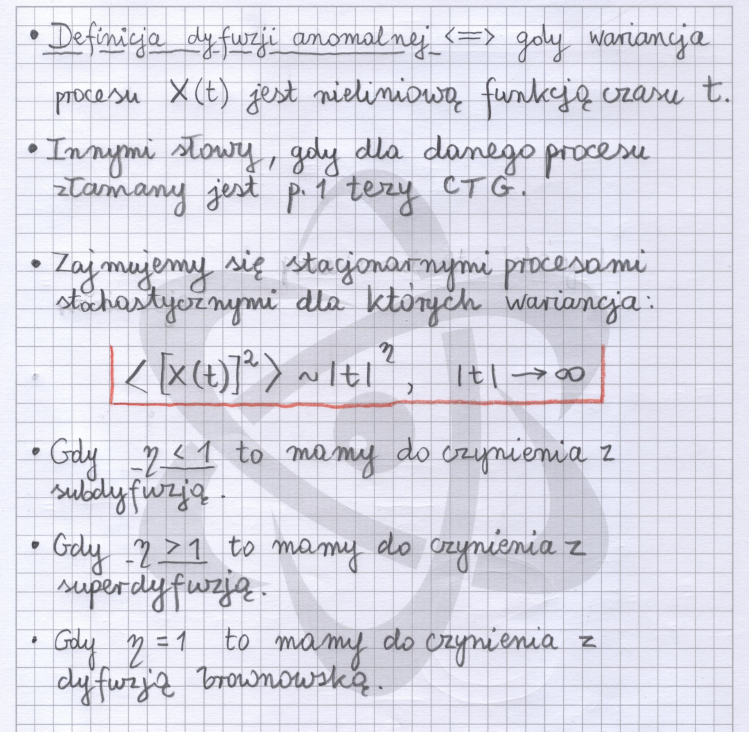 • Definicja dyfuzji anomalnej <=> gdy wariancja
procesu X(t) jest nieliniową funkcją czasu t.
• Innymi słowy, gdy dla danego procesu
złamany jest p. 1 tezy CTG.
• Zajmujemy się stacjonarnymi procesami
stochastycznymi dla których wariancja:
⟨[X(t)]²⟩ ~ |t|^η, |t| → ∞
• Gdy η < 1 to mamy do czynienia z
subdyfuzją.
• Gdy η > 1 to mamy do czynienia z
superdyfuzją.
• Gdy η = 1 to mamy do czynienia z
dyfuzją brownowską.